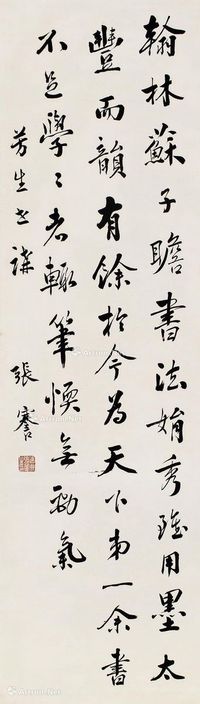 翰林蘇子瞻書法娟秀雖用墨太
豐而韻有餘於今為天下第一余書
不足學學者輒筆愞無勁氣
芳生世講
張謇